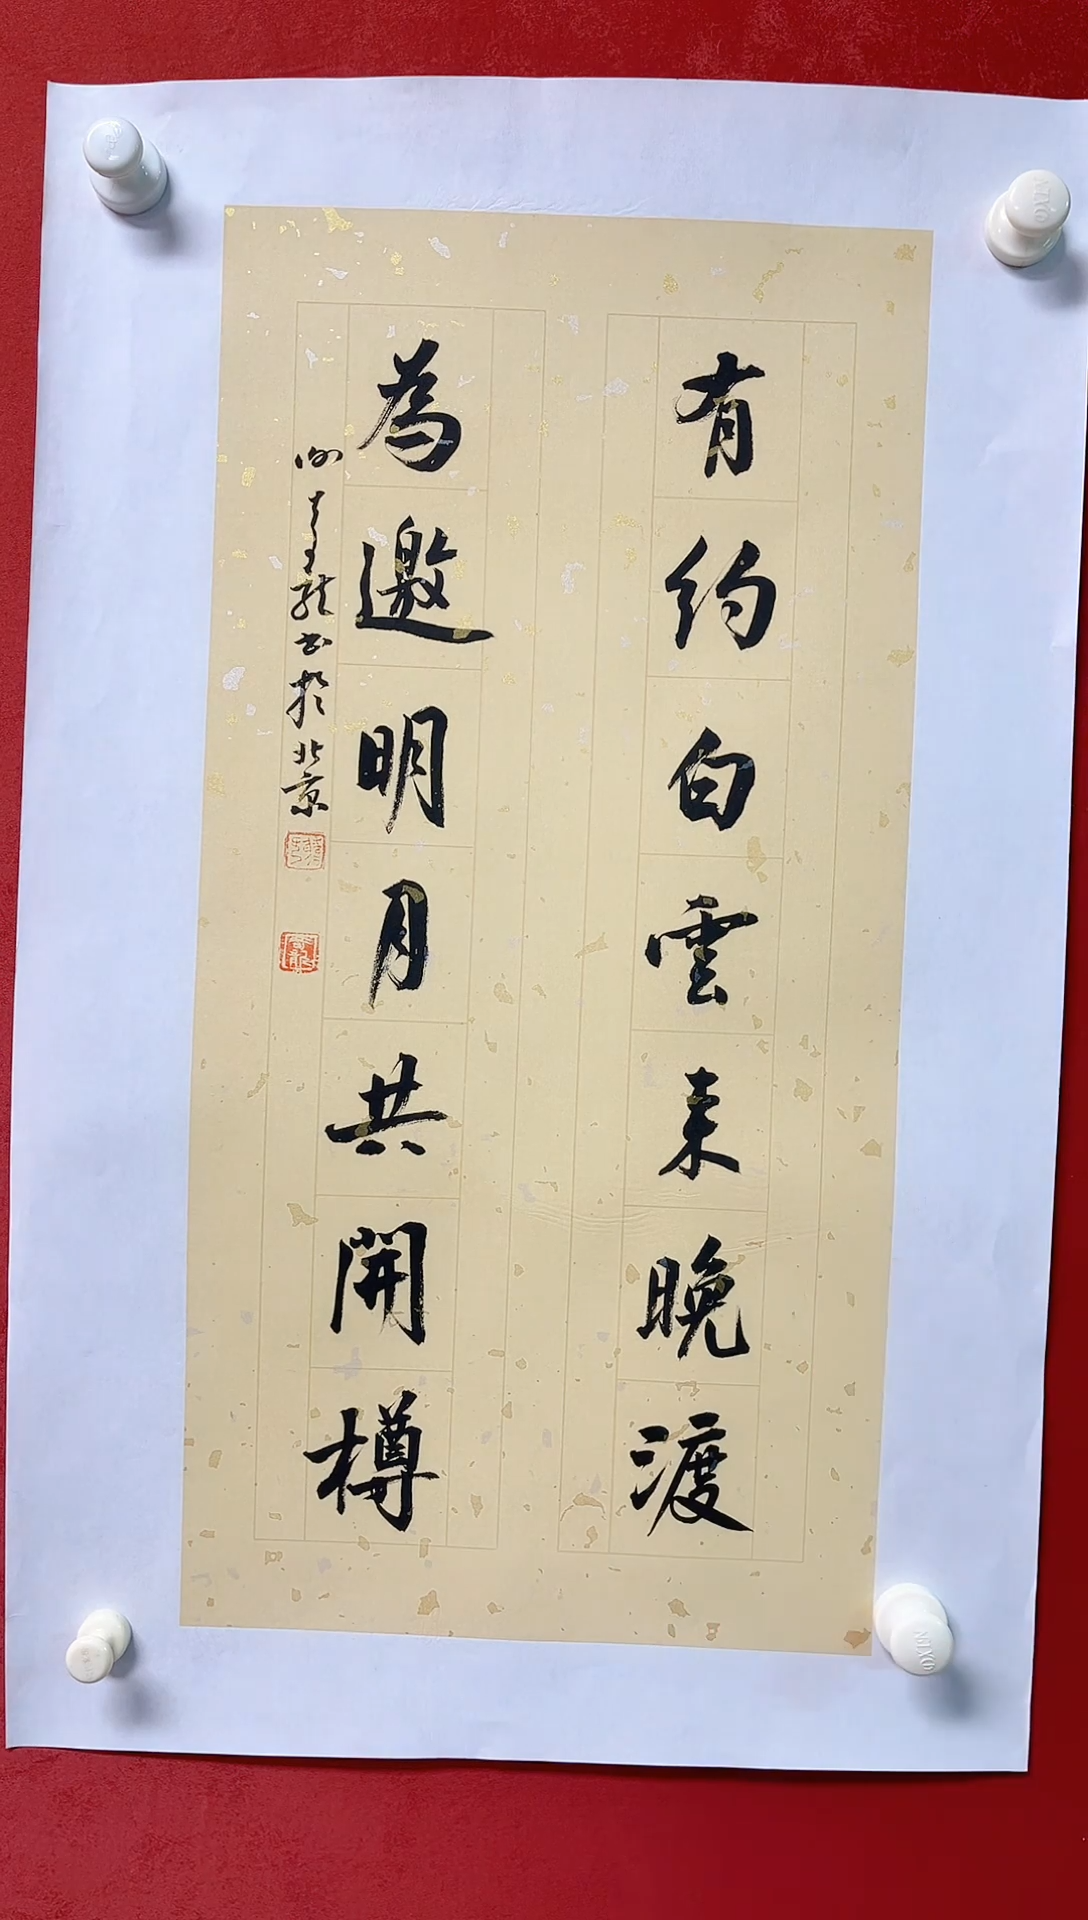 有約白雲来晚渡
為邀明月共開樽
書於北京